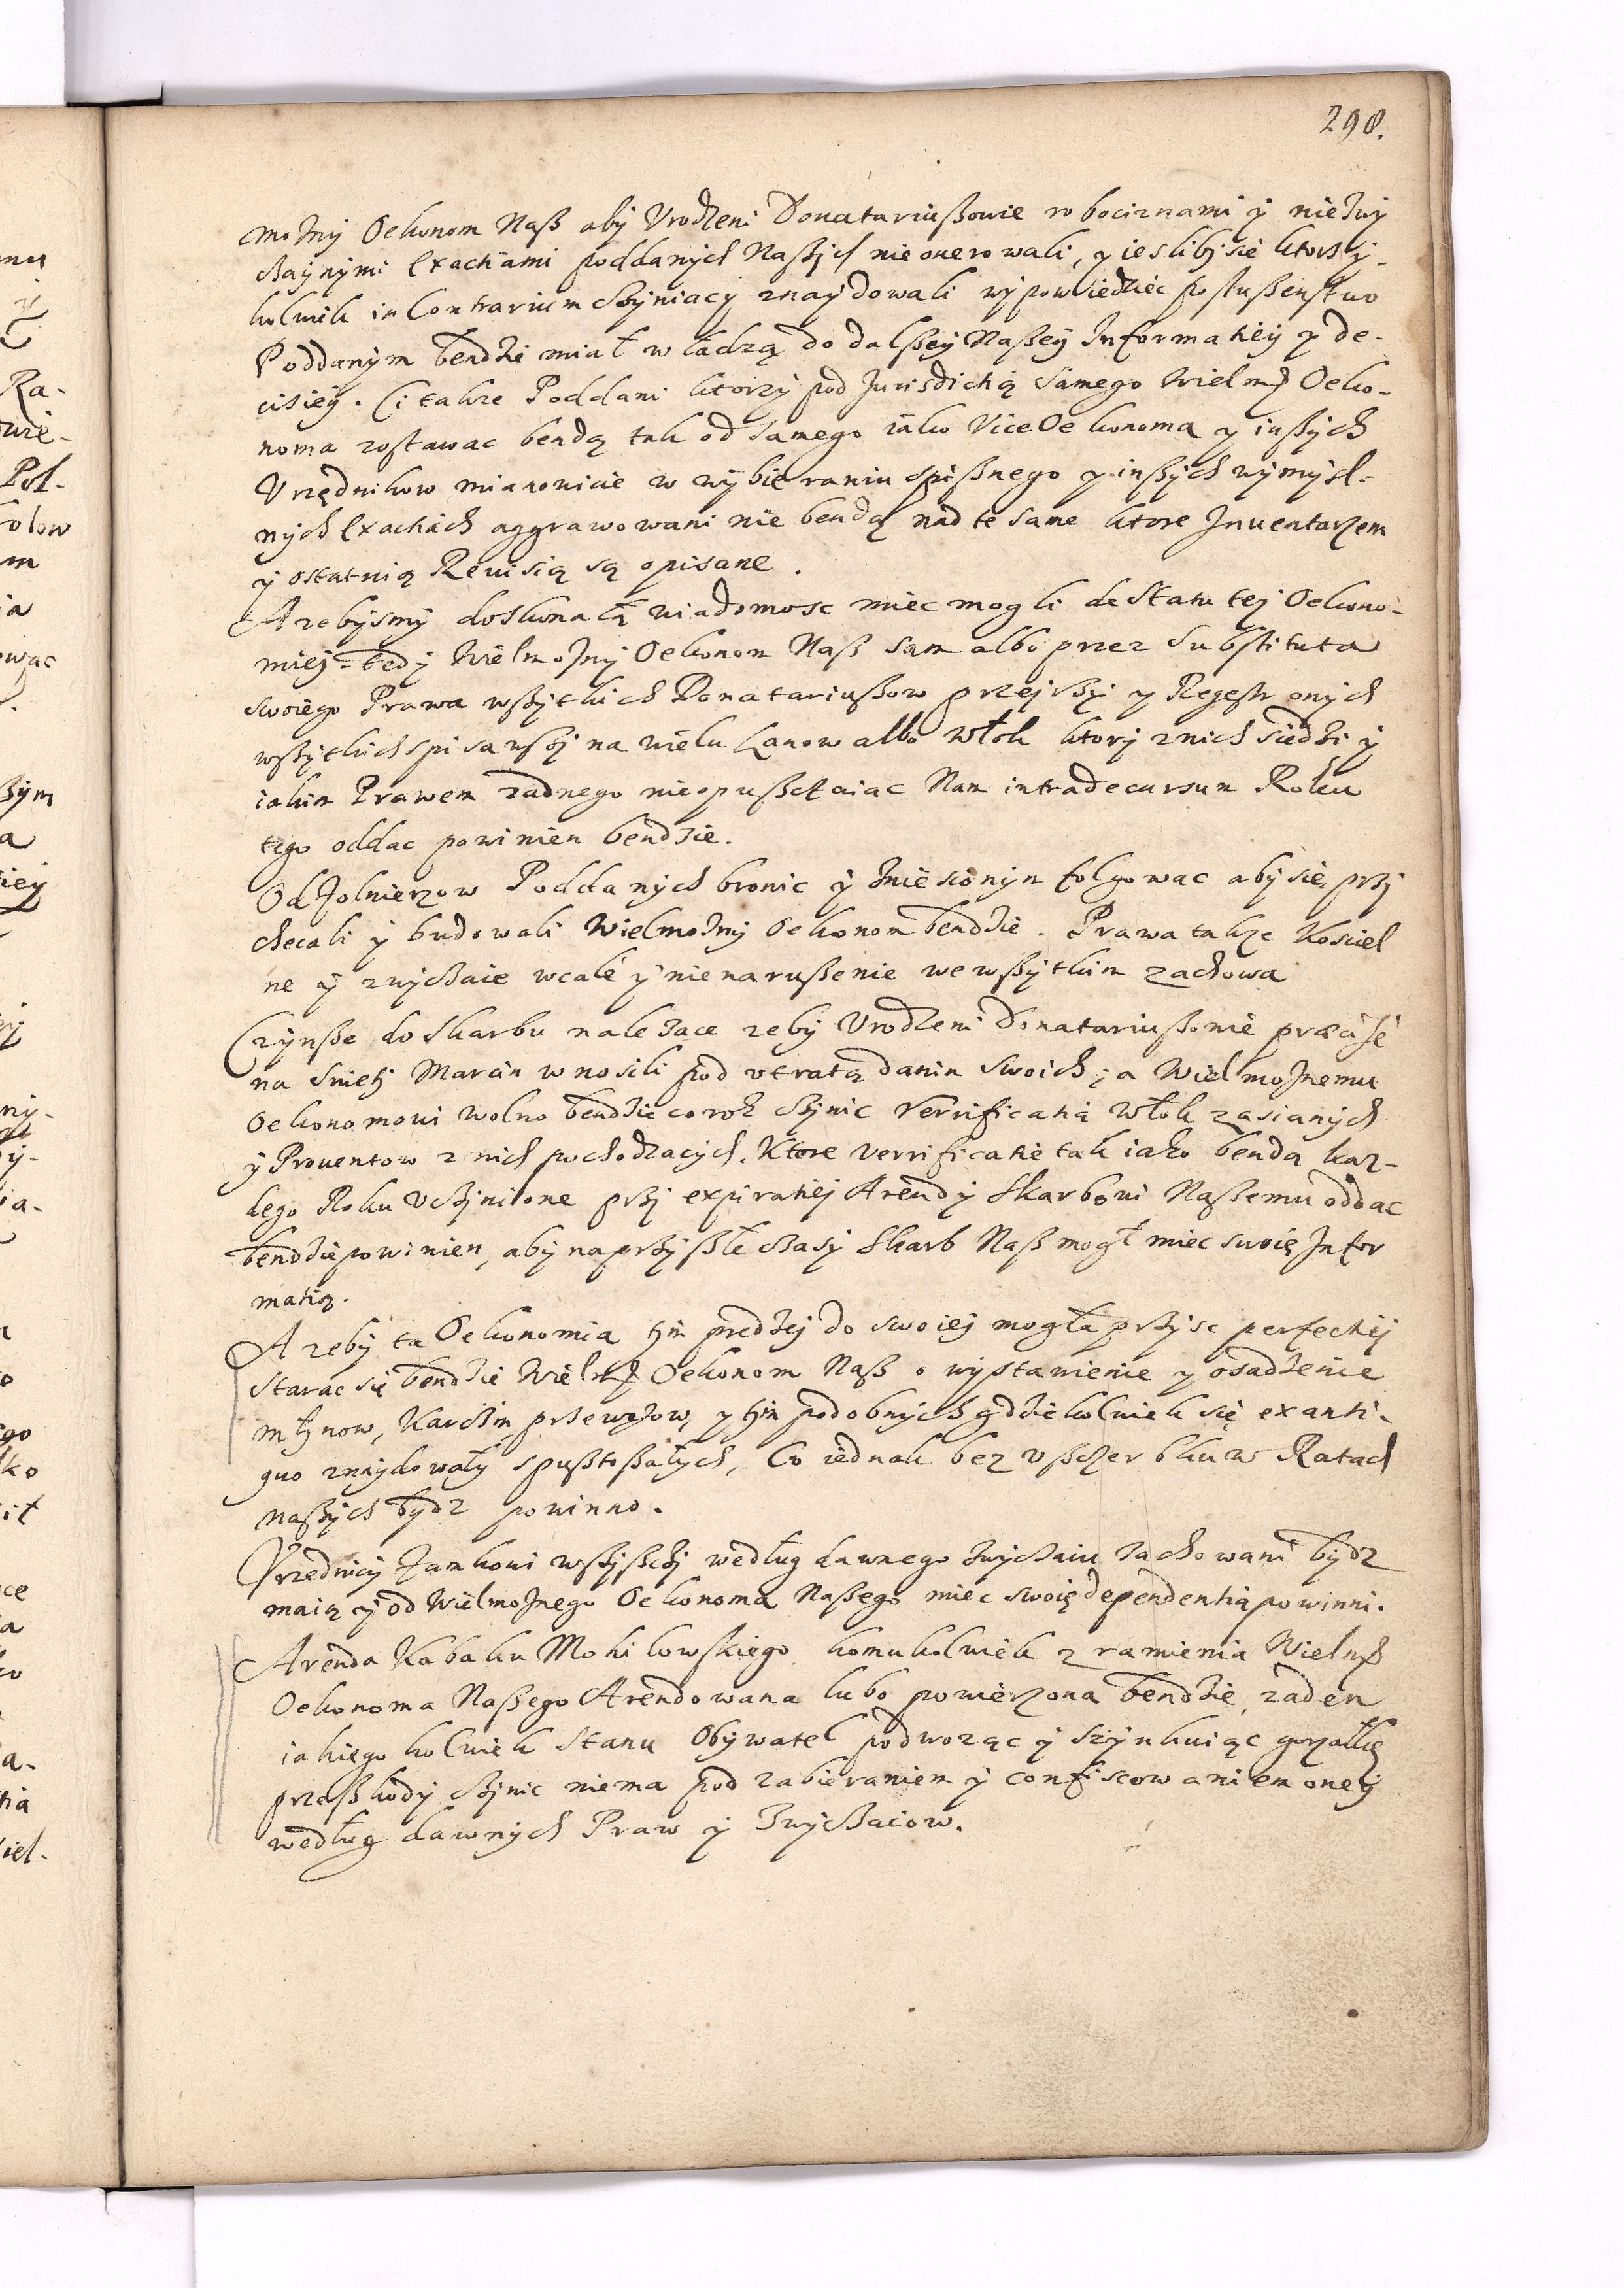 298.
możny Oekonom Naß aby Vrodzeni Donatariußowie robociznami y niezwy
czaynymi Exactiami poddanych Naßych nie onerowali, y iesliby sie ktorzy-
kolwiek in Contrarium czyniacy znaydowali wypowiedziec posłußenstwo
Poddanym bendzie miał władzą do dalßey Naßey Informatiey y de-
cisiey. Ci takze Poddani ktorzy pod Jurisdictią Samego Wielmo Oeko-
noma zostawac bendą tak od Samego iako Vice Oekonoma y inßych
Vrzędnikow mianowicie w wybieraniu spißnego y inßych wymysl-
nych Exactiach aggrawowani nie bendą nad te same ktore Inuentarzem
y ostatnią Reuisią są opisane.
A zebysmy doskonałą wiadomosc miec mogli de Statu tej Oekono-
miej tedy Wielmożny Oekonom Naß sam albo przez Substituta
swoiego Prawa wßytkich Donatariußow przejrzy y Regestr onych
wßytkich spisawßy na wielu Łanow albo włok ktory z nich siedzi y
iakim Prawem zadnego nieopußczaiac Nam intra decursum Roku
tego oddac powinien bendzie.
Od Zolnierzow Poddanych bronic y znieścionym folgowac aby sie przy
checali y budowali Wielmożny Oekonom bendzie. Prawa takze Kosciel
ne y zwyczaie wcale y nienarußenie we wßytkim zachowa
Czynße do Skarbu należace zeby Vrodzeni Donatariußowie præcise
na Swięty Marcin wnosili pod vtratą danin swoich; a Wielmożnemu
Oekonomowi wolno bendzie co rok czynic Verrificatią włok zasianych
y Prouentow z nich pochodzacych. Ktore verrificatie tak iako benda kaz-
dego Roku vczynione przy expiratiej Arendy Skarbowi Naßemu oddac
bendzie powinien, aby na przyßłe czasy Skarb Naß mogł miec swoię Infor
matią.
A zeby ta Oekonomia tym prędzej do swoiej mogła przyisc perfectiej
starac się bendzie Wielmo Oekonom Naß o wystawienie y osadzenie
młynow, Karczm, przewozow, y tym podobnych gdziekolwiek się ex anti-
quo znaydowały spustoßałych, Co iednak bez vßczerbku w Ratach
naßych bydz powinno.
Vrzednicy Zamkowi wßyßcy według dawnego zwyczaiu zachowani bydz
maią y od Wielmożnego Oekonoma Naßego miec swoię dependentią powinni.
Arenda Kabaku Mohilowskiego komukolwiek z ramienia Wielmo
Oekonoma Naßego Arendowana lubo powierzona bendzie, zaden
iakiegokolwiek stanu Obywatel podwoząc y szynkuiąc gorzałkę
przeßkody czynic niema pod zabieraniem y confiscowaniem oney
według dawnych Praw y Zwyczaiow.